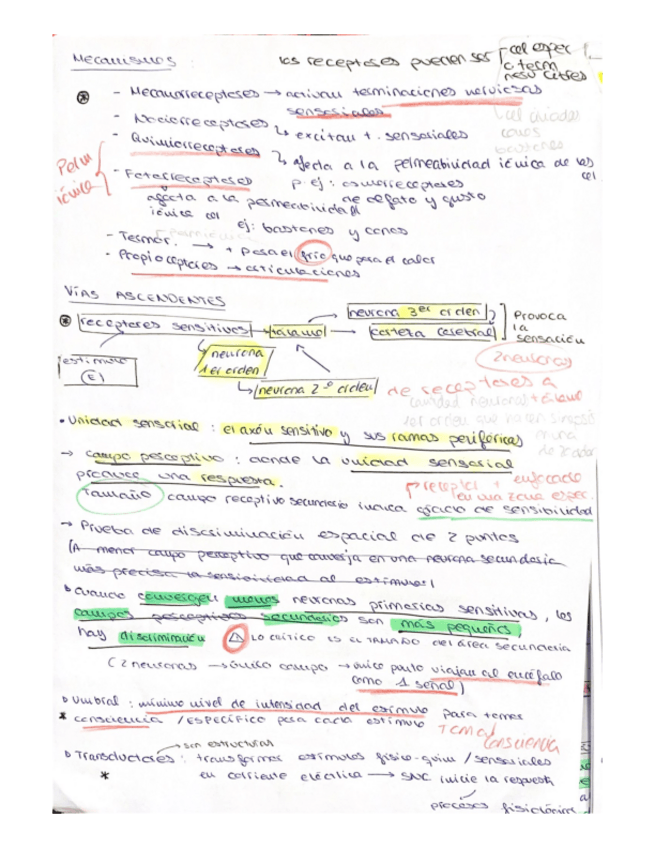 Mecanismos:
los receptores pueden ser
cel espec
o term
nerv libres
- Mecanorreceptores → activan terminaciones nerviosas
sensoriales
- Nociorreceptores
↳ excitan t. sensoriales
- Quimiorreceptores
↳ afecta a la permeabilidad iónica de las
cel
Perm
iónica
- Fotorreceptores
p. ej: osmorreceptores
de olfato y gusto
afecta a la permeabilidad
iónica cel
ej: bastones y conos
- Termor. → + para el frío que para el calor
- Propioceptores → articulaciones
VÍAS ASCENDENTES
neurona 3er orden
receptores sensitivos → tálamo → corteza cerebral
Provoca
la
sensación
estímulo
(E)
neurona
1er orden
2 neuronas
↳ neurona 2º orden
de receptores a
tálamo
cantidad neuronal
1er orden que hacen sinapsis
• Unidad sensorial: el axón sensitivo y sus ramas periféricas
→ campo perceptivo: donde la unidad sensorial
produce una respuesta.
receptor + enfocado
en una zona espec.
Tamaño campo receptivo secundario indica grado de sensibilidad
→ Prueba de discriminación espacial de 2 puntos
(A menor campo perceptivo que converja en una neurona secundaria
más precisa la sensibilidad al estímulo!
↳ cuando convergen menos neuronas primarias sensitivas, los
campos perceptivos secundarios son más pequeños,
hay discriminación
LO CRÍTICO ES EL TAMAÑO del área secundaria
(2 neuronas → único campo → único punto viajan al encéfalo
como 1 señal)
↳ Umbral: mínimo nivel de intensidad del estímulo para tomar
* consciencia / ESPECÍFICO para cada estímulo
Tomar
consciencia
→ son estructuras
↳ Transductores: transformar estímulos físico-quím / sensoriales
* en corriente eléctrica → SNC inicie la respuesta
procesos fisiológicos